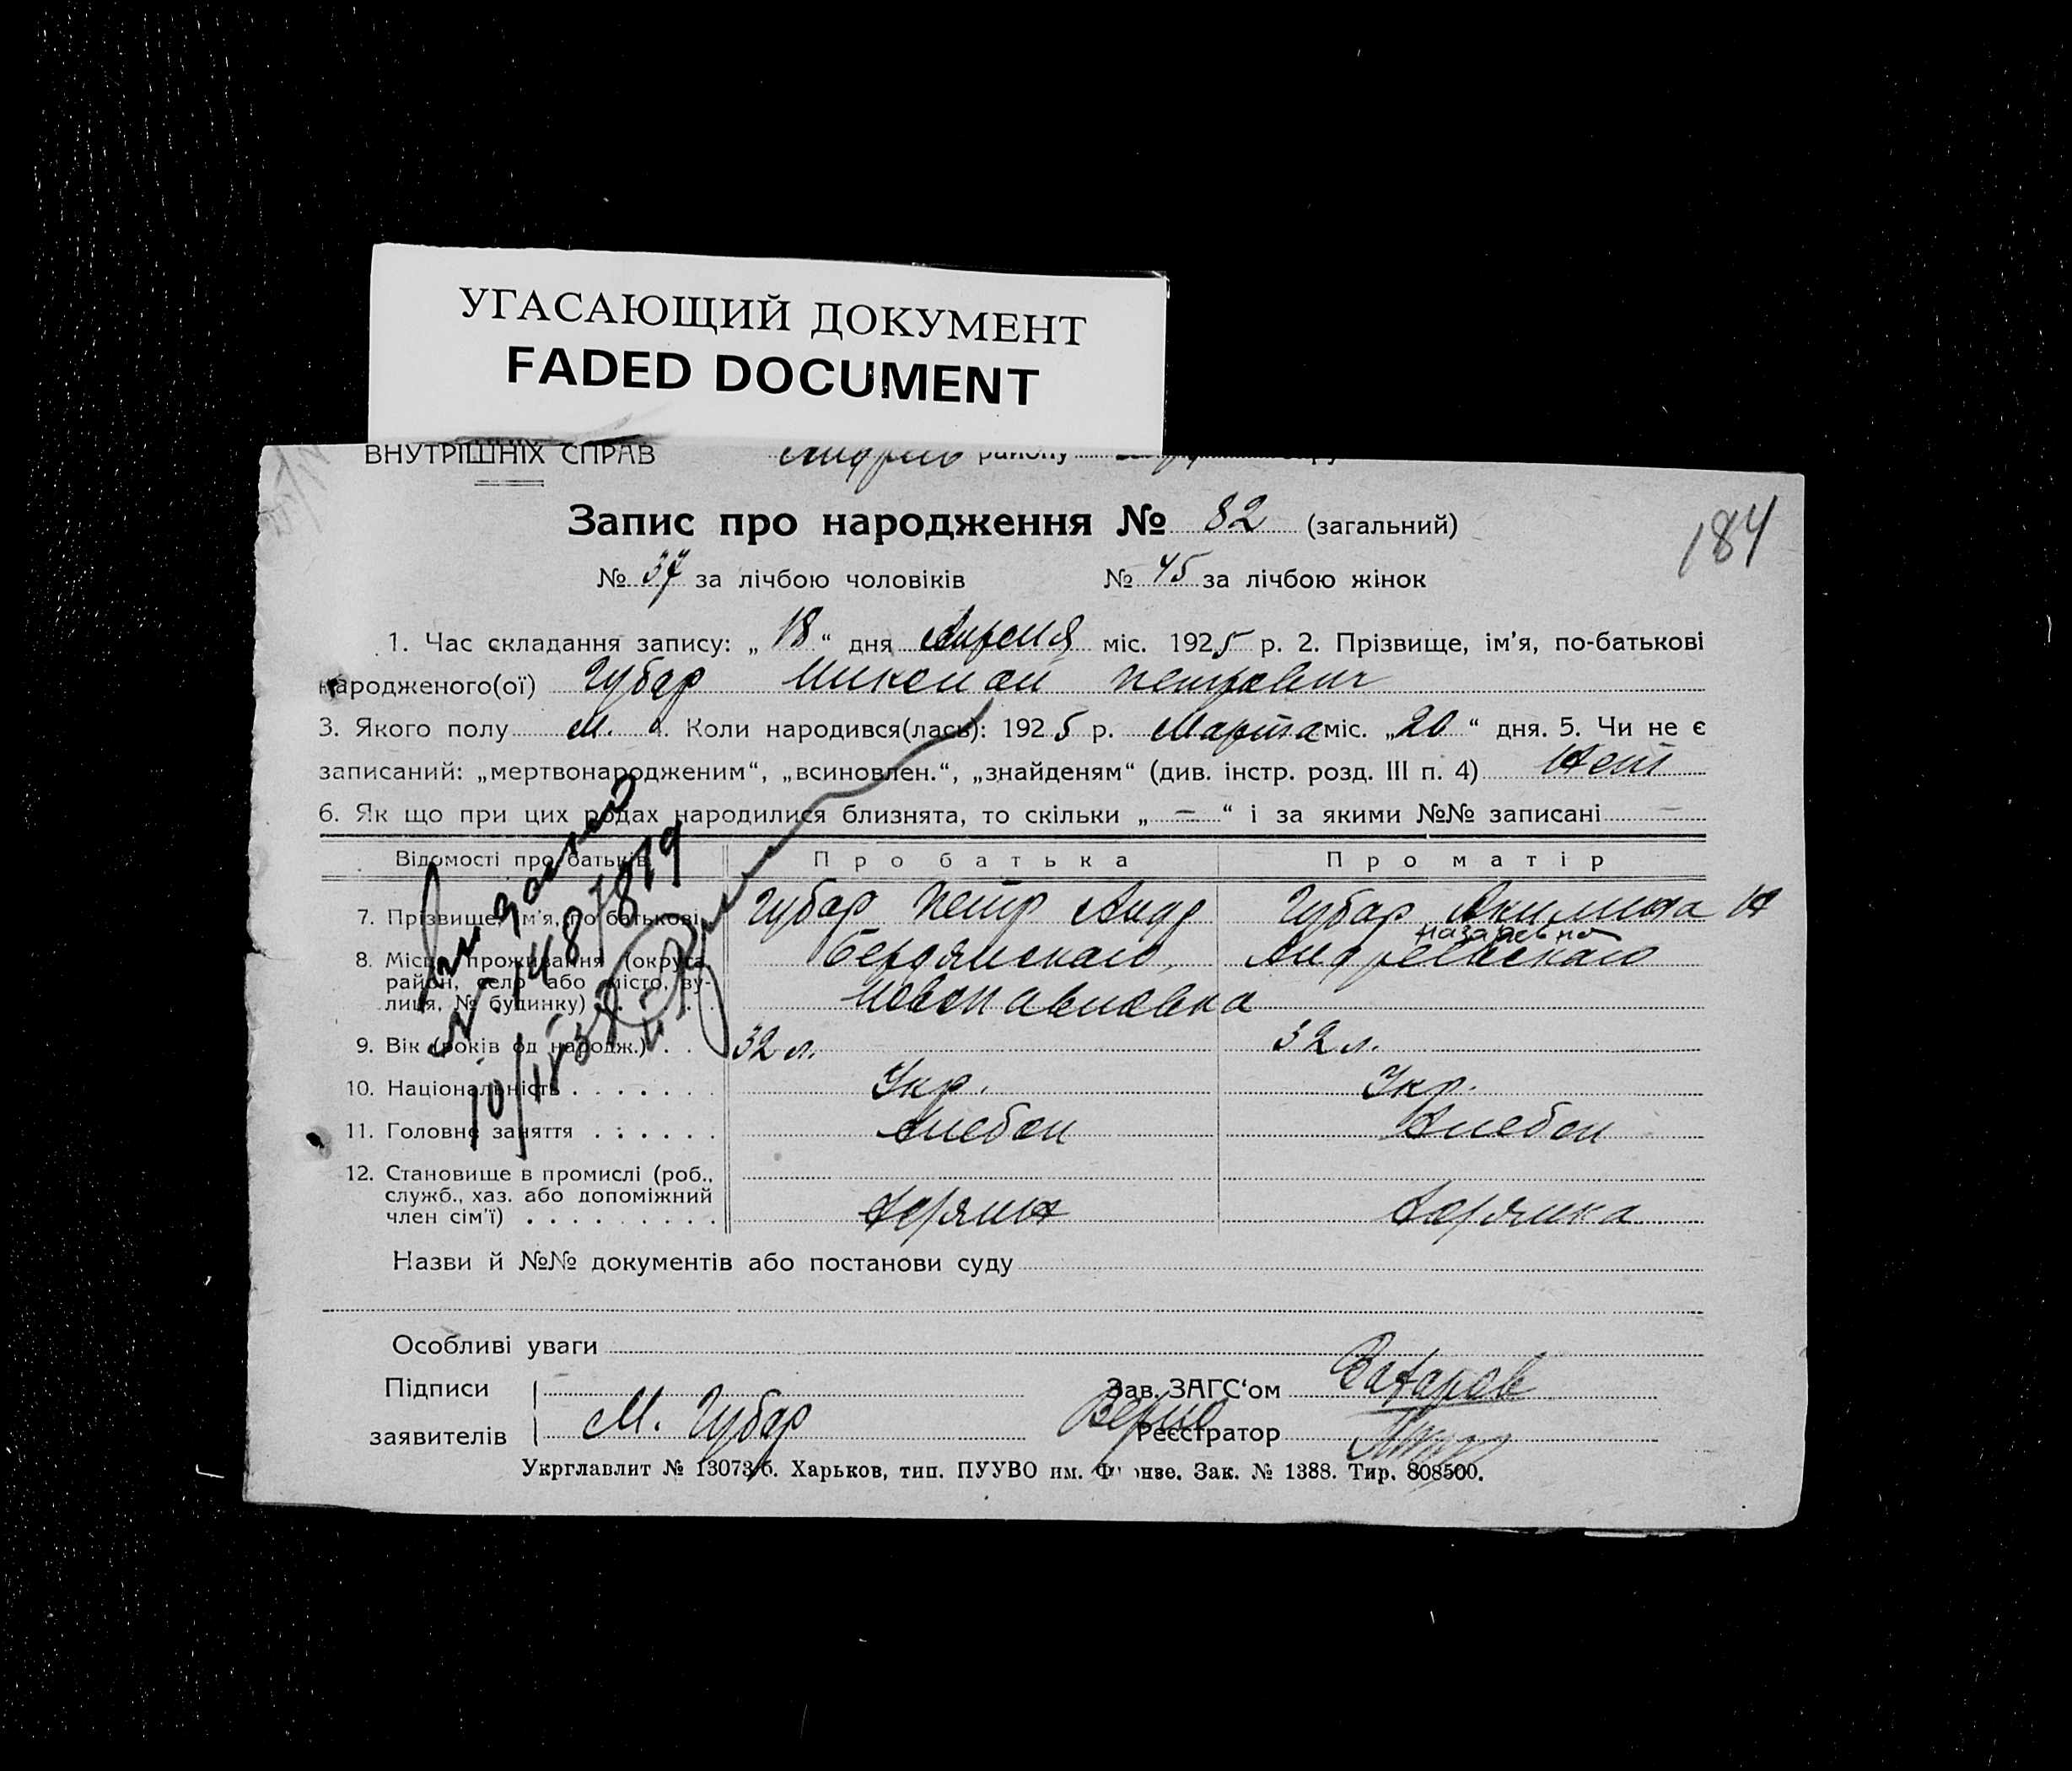 УГАСАЮЩИЙ ДОКУМЕНТ
FADED DOCUMENT
ВНУТРІШНІХ СПРАВ району
Запис про народження № 82 (загальний)
184
№ 37 за лічбою чоловіків № 45 за лічбою жінок
1. Час складання запису: „ 18 “ дня Апреля міс. 1925 р. 2. Прізвище, ім’я, по-батькові
народженого(ої) Губар Николай Петрович
3. Якого полу М. 4. Коли народився(лась): 1925 р. Марта міс. „20“ дня. 5. Чи не є
записаний: „мертвонародженим“, „всиновлен.“, „знайденям“ (див. інстр. розд. III п. 4) Нет
6. Як що при цих родах народилися близнята, то скільки „ — “ і за якими №№ записані —
Відомості про батьків Про батька Про матір
7. Прізвище, ім’я, по батькові Губар Петр Андр Губар Акилина Н
назаровна
8. Місце проживання (округа, Бердянскаго, Андреевскаго
район, село або місто, ву-
лиця, № будинку) Новопавловка
9. Вік (років од народж.) . . 32 л. 32 л.
10. Національність . . . . . . Укр. Укр.
11. Головне заняття . . . . . . Хлебоп Хлебоп
12. Становище в промислі (роб.,
служб., хаз. або допоміжний
член сім’ї) . . . . . . . . . Хозяин Хозяйка
№ 1487819
Назви й №№ документів або постанови суду
Особливі уваги
Підписи Зав. ЗАГС‘ом Захаров
заявителів М. Губар Верно Реєстратор
Укрглавлит № 13073/б. Харьков, тип. ПУУВО им. Фрунзе. Зак. № 1388. Тир. 808500.